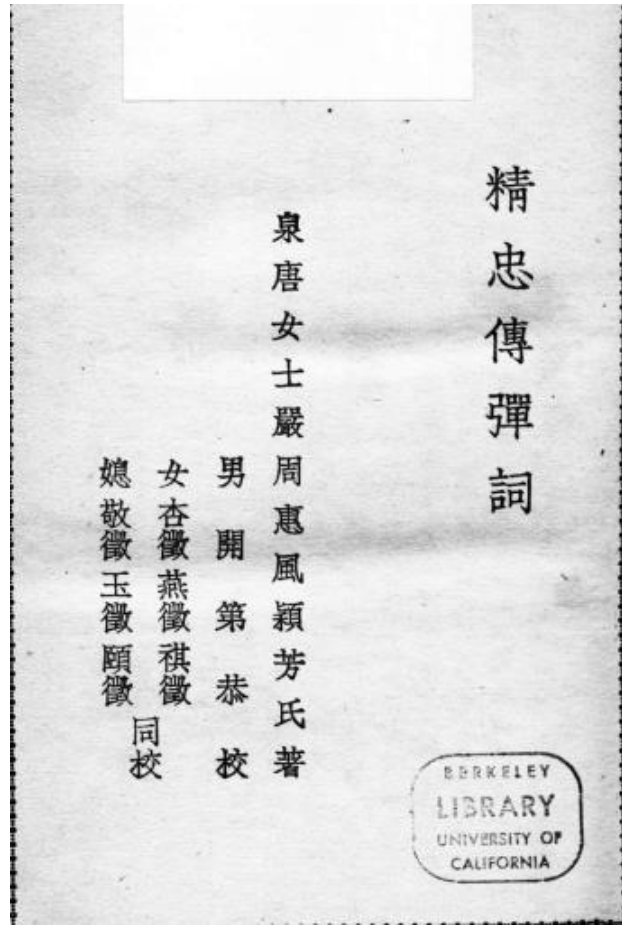 精忠傳彈詞
泉唐女士嚴周蕙風穎芳氏著
男開第恭校
女杏徽燕徽祺徽
媳敬徽玉徽頤徽
同校
BERKELEY
LIBRARY
UNIVERSITY OF
CALIFORNIA